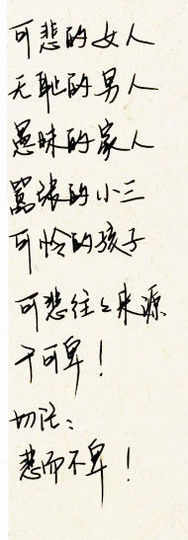 可悲的女人
无耻的男人
愚昧的家人
嚣张的小三
可怜的孩子
可悲往往来源
于可卑！
切记：
悲而不卑！